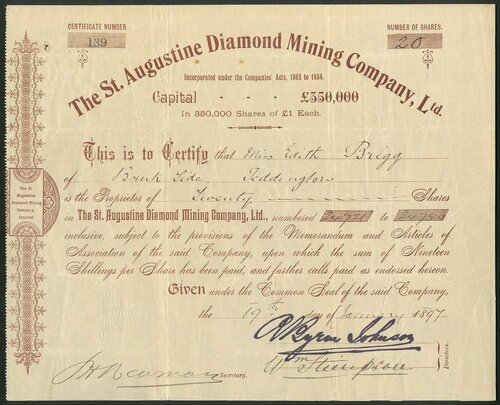 CERTIFICATE NUMBER
139
NUMBER OF SHARES.
20
The St. Augustine Diamond Mining Company, Ltd.
Incorporated under the Companies' Acts, 1862 to 1884.
Capital - - - £350,000
In 350,000 Shares of £1 Each.
This is to Certify that Miss Edith Brigg
of Bank Side Teddington
is the Proprietor of Twenty Shares
in The St. Augustine Diamond Mining Company, Ltd., numbered to
inclusive, subject to the provisions of the Memorandum and Articles of
Association of the said Company, upon which the sum of Nineteen
Shillings per Share has been paid, and further calls paid as endorsed hereon.
Given under the Common Seal of the said Company,
the 19th day of January 1897
The St. Augustine Diamond Mining Company, Limited
Johnson
Secretary.
Wm Stimpson
Directors.